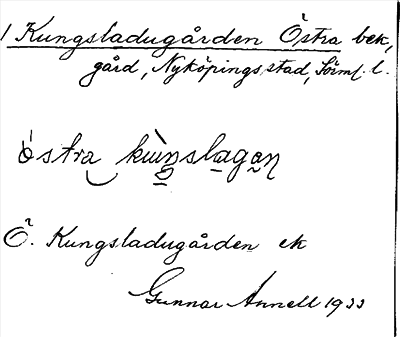 1 Kungsladugården Östra bek,
gård, Nyköpings stad, Söml. l.
östra kùnslagan
Ö. Kungsladugården ek
Gunnar Annell 1933